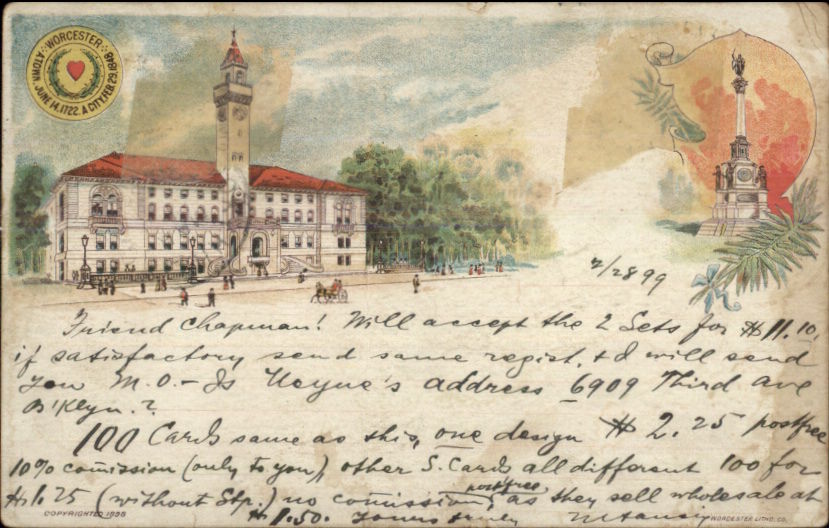 WORCESTER
A TOWN JUNE 14, 1722. A CITY, FEB. 29, 1848.
2/28 99
Friend Chapman! Will accept the 2 Sets for $11.10,
if satisfactory send same regist. & I will send
you M.O. – Is Heyne's address 6909 Third Ave
B'klyn.?
100 Cards same as this, one design $2.25 postfree
10% comission (only to you), other S. Cards all different 100 for
$1.25 (without Stp.) no comission, postfree, as they sell wholesale at
$1.50. Yours truly
COPYRIGHTED 1898
WORCESTER LITHO. CO.